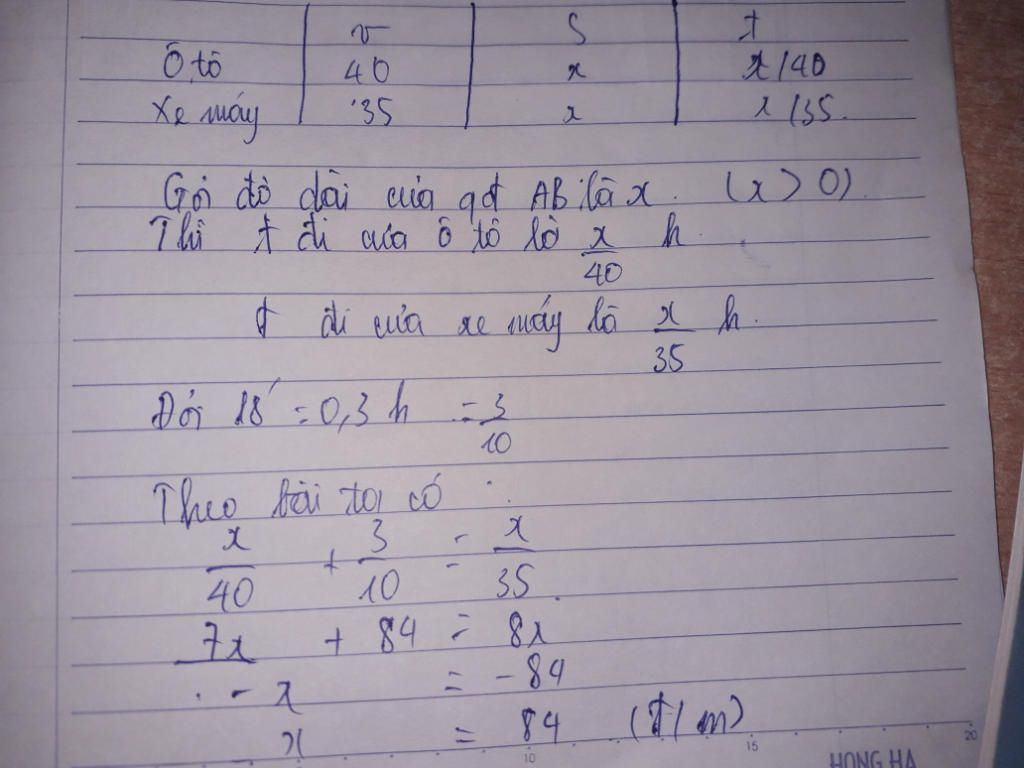 v S t
Ô tô 40 x x/40
Xe máy 35 x x/35
Gọi độ dài của qđ AB là x. (x > 0)
Thì t đi của ô tô là x/40 h
t đi của xe máy là x/35 h.
Đổi 18' = 0,3 h = 3/10
Theo bài ta có :
x/40 + 3/10 = x/35.
7x + 84 = 8x
- x = -84
x = 84 (t/m)
10 15 20
HONG HA